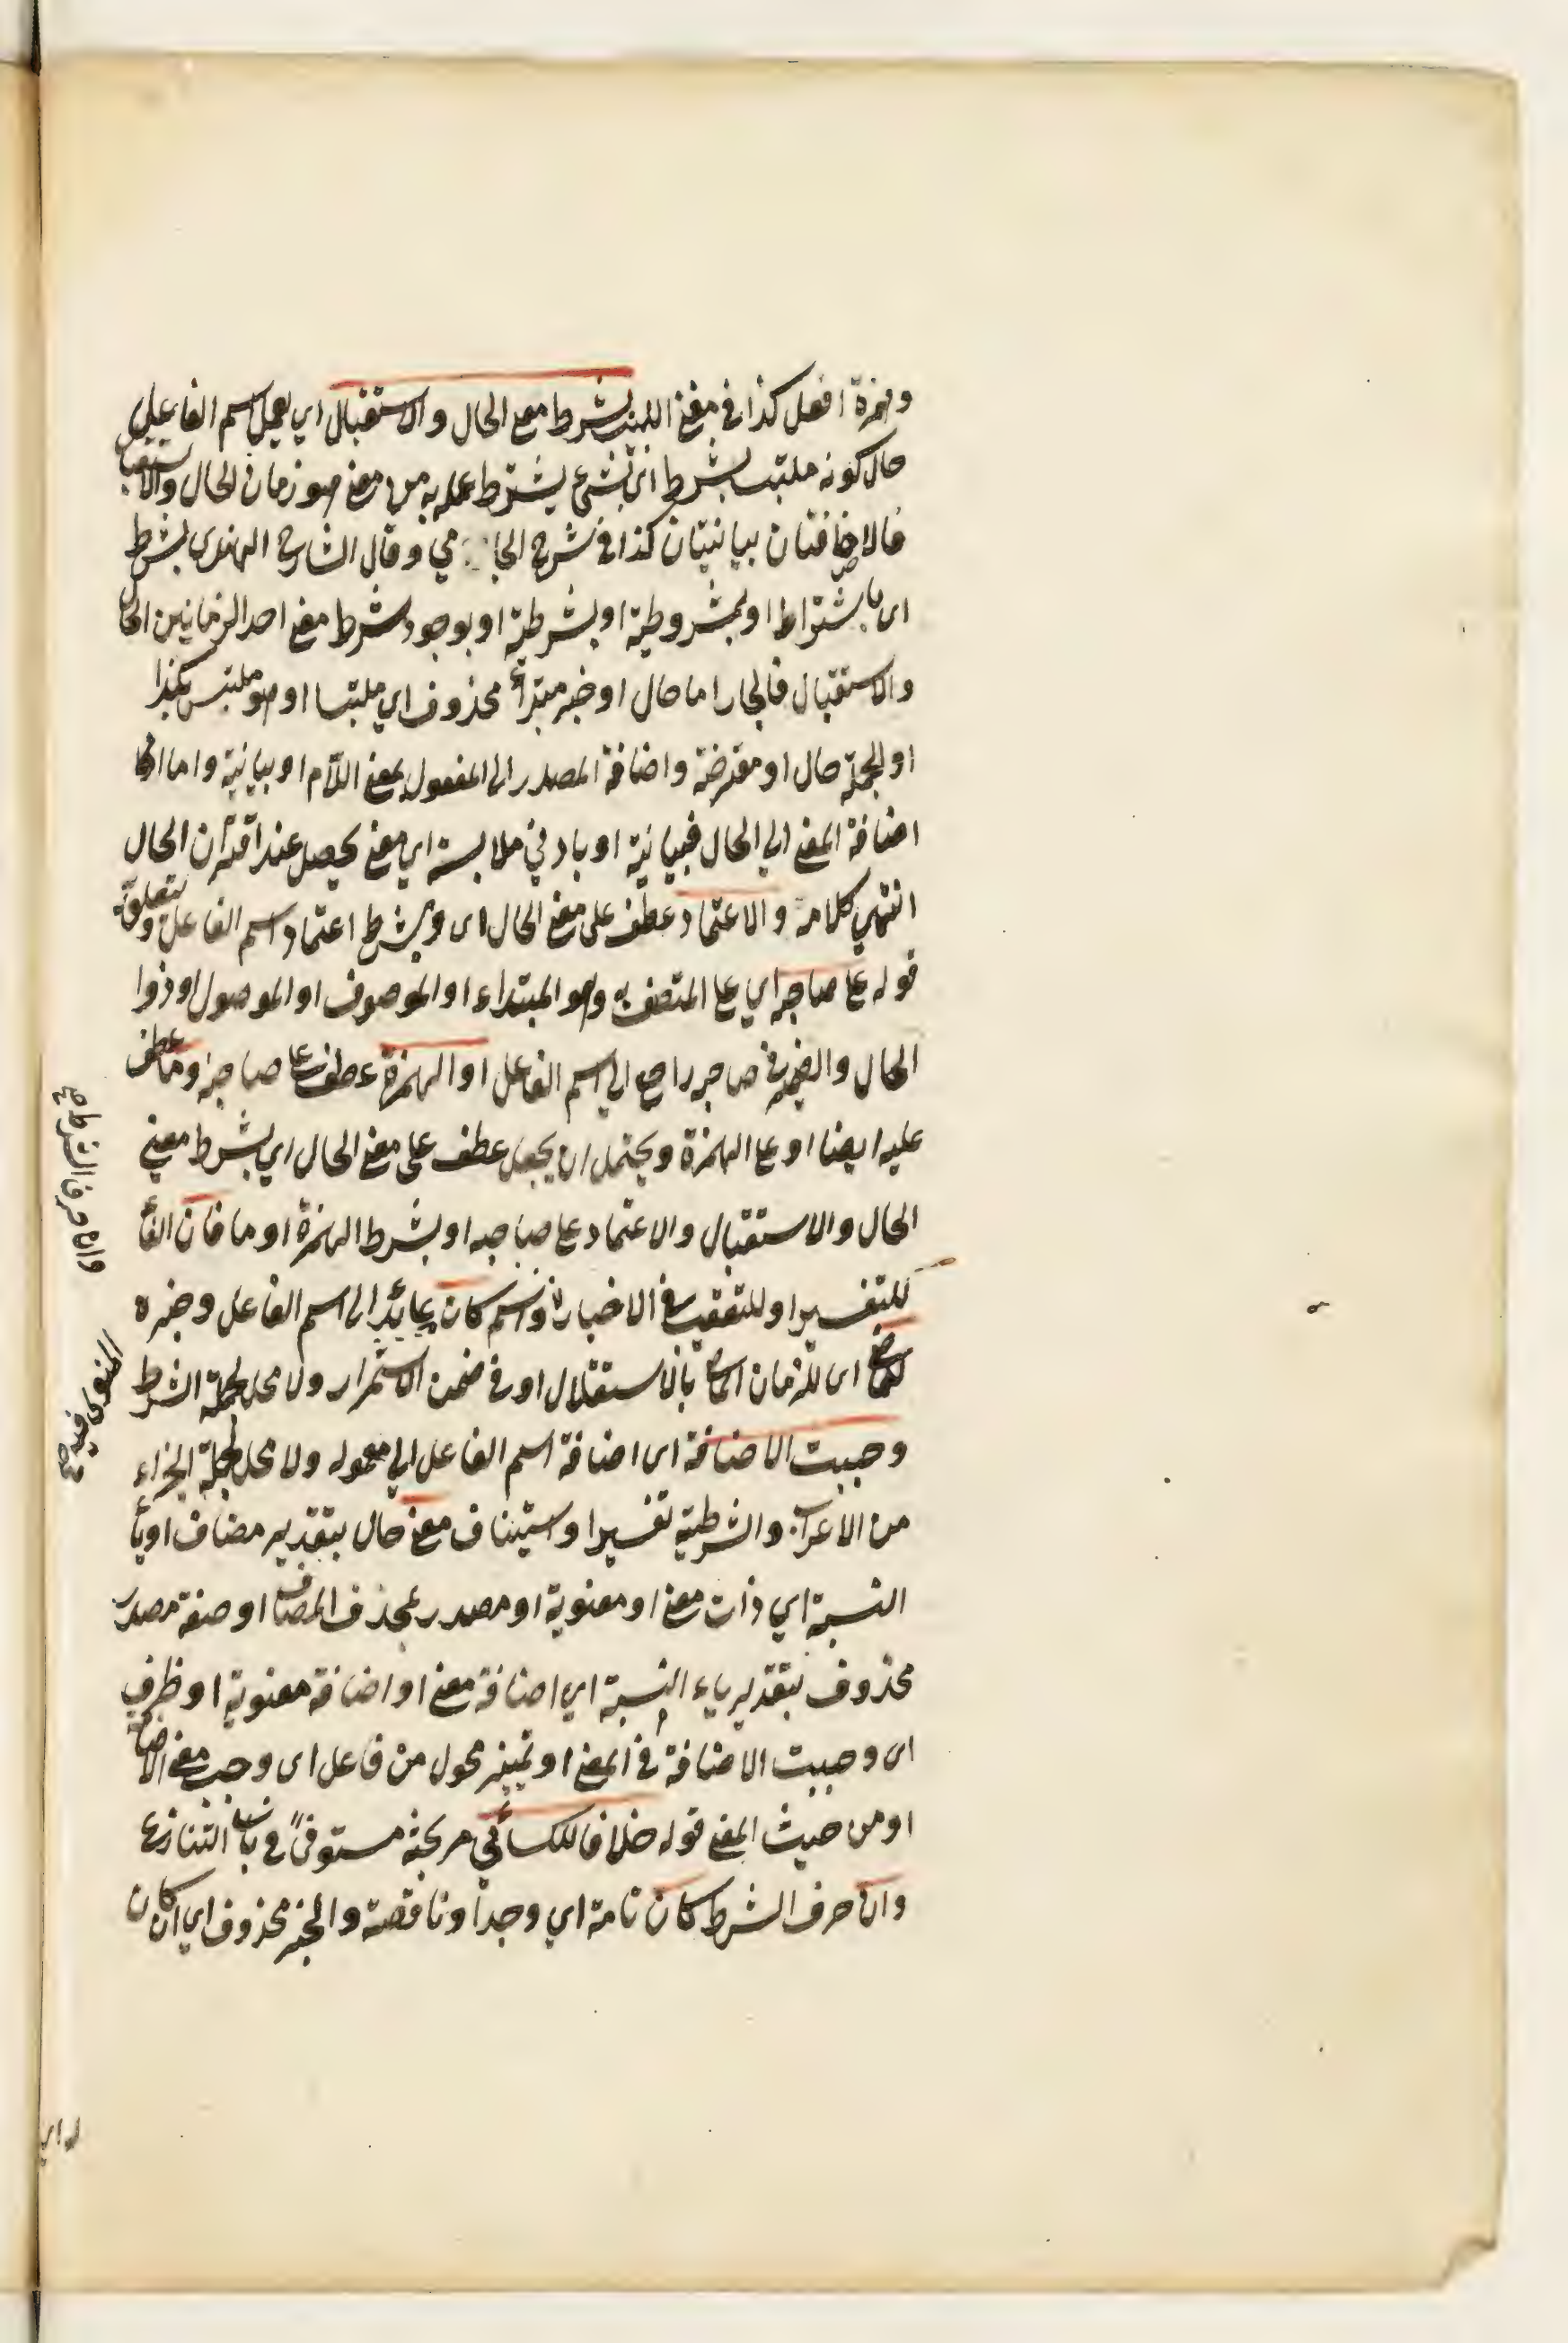 وهمزة افعل كذا في مغنى اللبيب بشرط معنى الحال والاستقبال اي يعمل اسم الفاعل
حال كونه ملتبسا بشرط اي بشئ يشترط عمله به من معنى هو زمان الحال والاستقبال
فالاضافتان بيانيتان كذا في شرح الجامي وقال الشارح الهندى بشرط
اى باشتراط او بمشروطية او بشرطية او بوجود شرط معنى احد الزمانين الحال
والاستقبال فالجار اما حال او خبر مبتدأ محذوف اي ملتبسا او هو ملتبس بكذا
او الجملة حال او معترضة واضافة المصدر الى المفعول بمعنى اللام او بيانية واما
اضافة المعنى الي الحال فبيانية او بادني ملابسة اي معنى يحصل عند اقتران الحال
انتهي كلامه والاعتماد عطف على معنى الحال اى وبشرط اعتماد اسم الفاعل ويتعلق
قوله على صاحبه اي على المتصف به وهو المبتداء او الموصوف او الموصول او ذوا
الحال والضمير في صاحبه راجع الي اسم الفاعل او الهمزة عطف على صاحبه وما عطف
عليه ايضا او على الهمزة ويحتمل ان يجعل عطف على معنى الحال اي بشرط معني
الحال والاستقبال والاعتماد على صاحبه او بشرط الهمزة او ما فان الفأ
للتفسير او للتعقيب في الاخبار واسم كان عائد الى اسم الفاعل وخبره
للماضي اى للزمان الماضي بالاستقلال او في ضمن الاستمرار ولا محل لجملة الشرط
وجبت الاضافة اى اضافة اسم الفاعل الي معموله ولا محل لجملة الجزاء
من الاعراب والشرطية تفسير او استيناف معنى حال بتقدير مضاف او يأ
النسبة اي ذات معنى او معنوية او مصدر بحذف المضاف او صفة مصدر
محذوف بتقدير ياء النسبة اي اضافة معنى او اضافة معنوية او ظرف
اى وجبت الاضافة في المعنى او تمييز محول من فاعل اى وجب معنى الاضافة
او من حيث المعنى قوله خلافا للكسائي مر بحثه مستوفىً في باب التنازع
وان حرف الشرط كان تامة اي وجد او ناقصة والخبر محذوف اي ان كان
وانا حرف الشرط صح
المنوى فيه صح
له اي